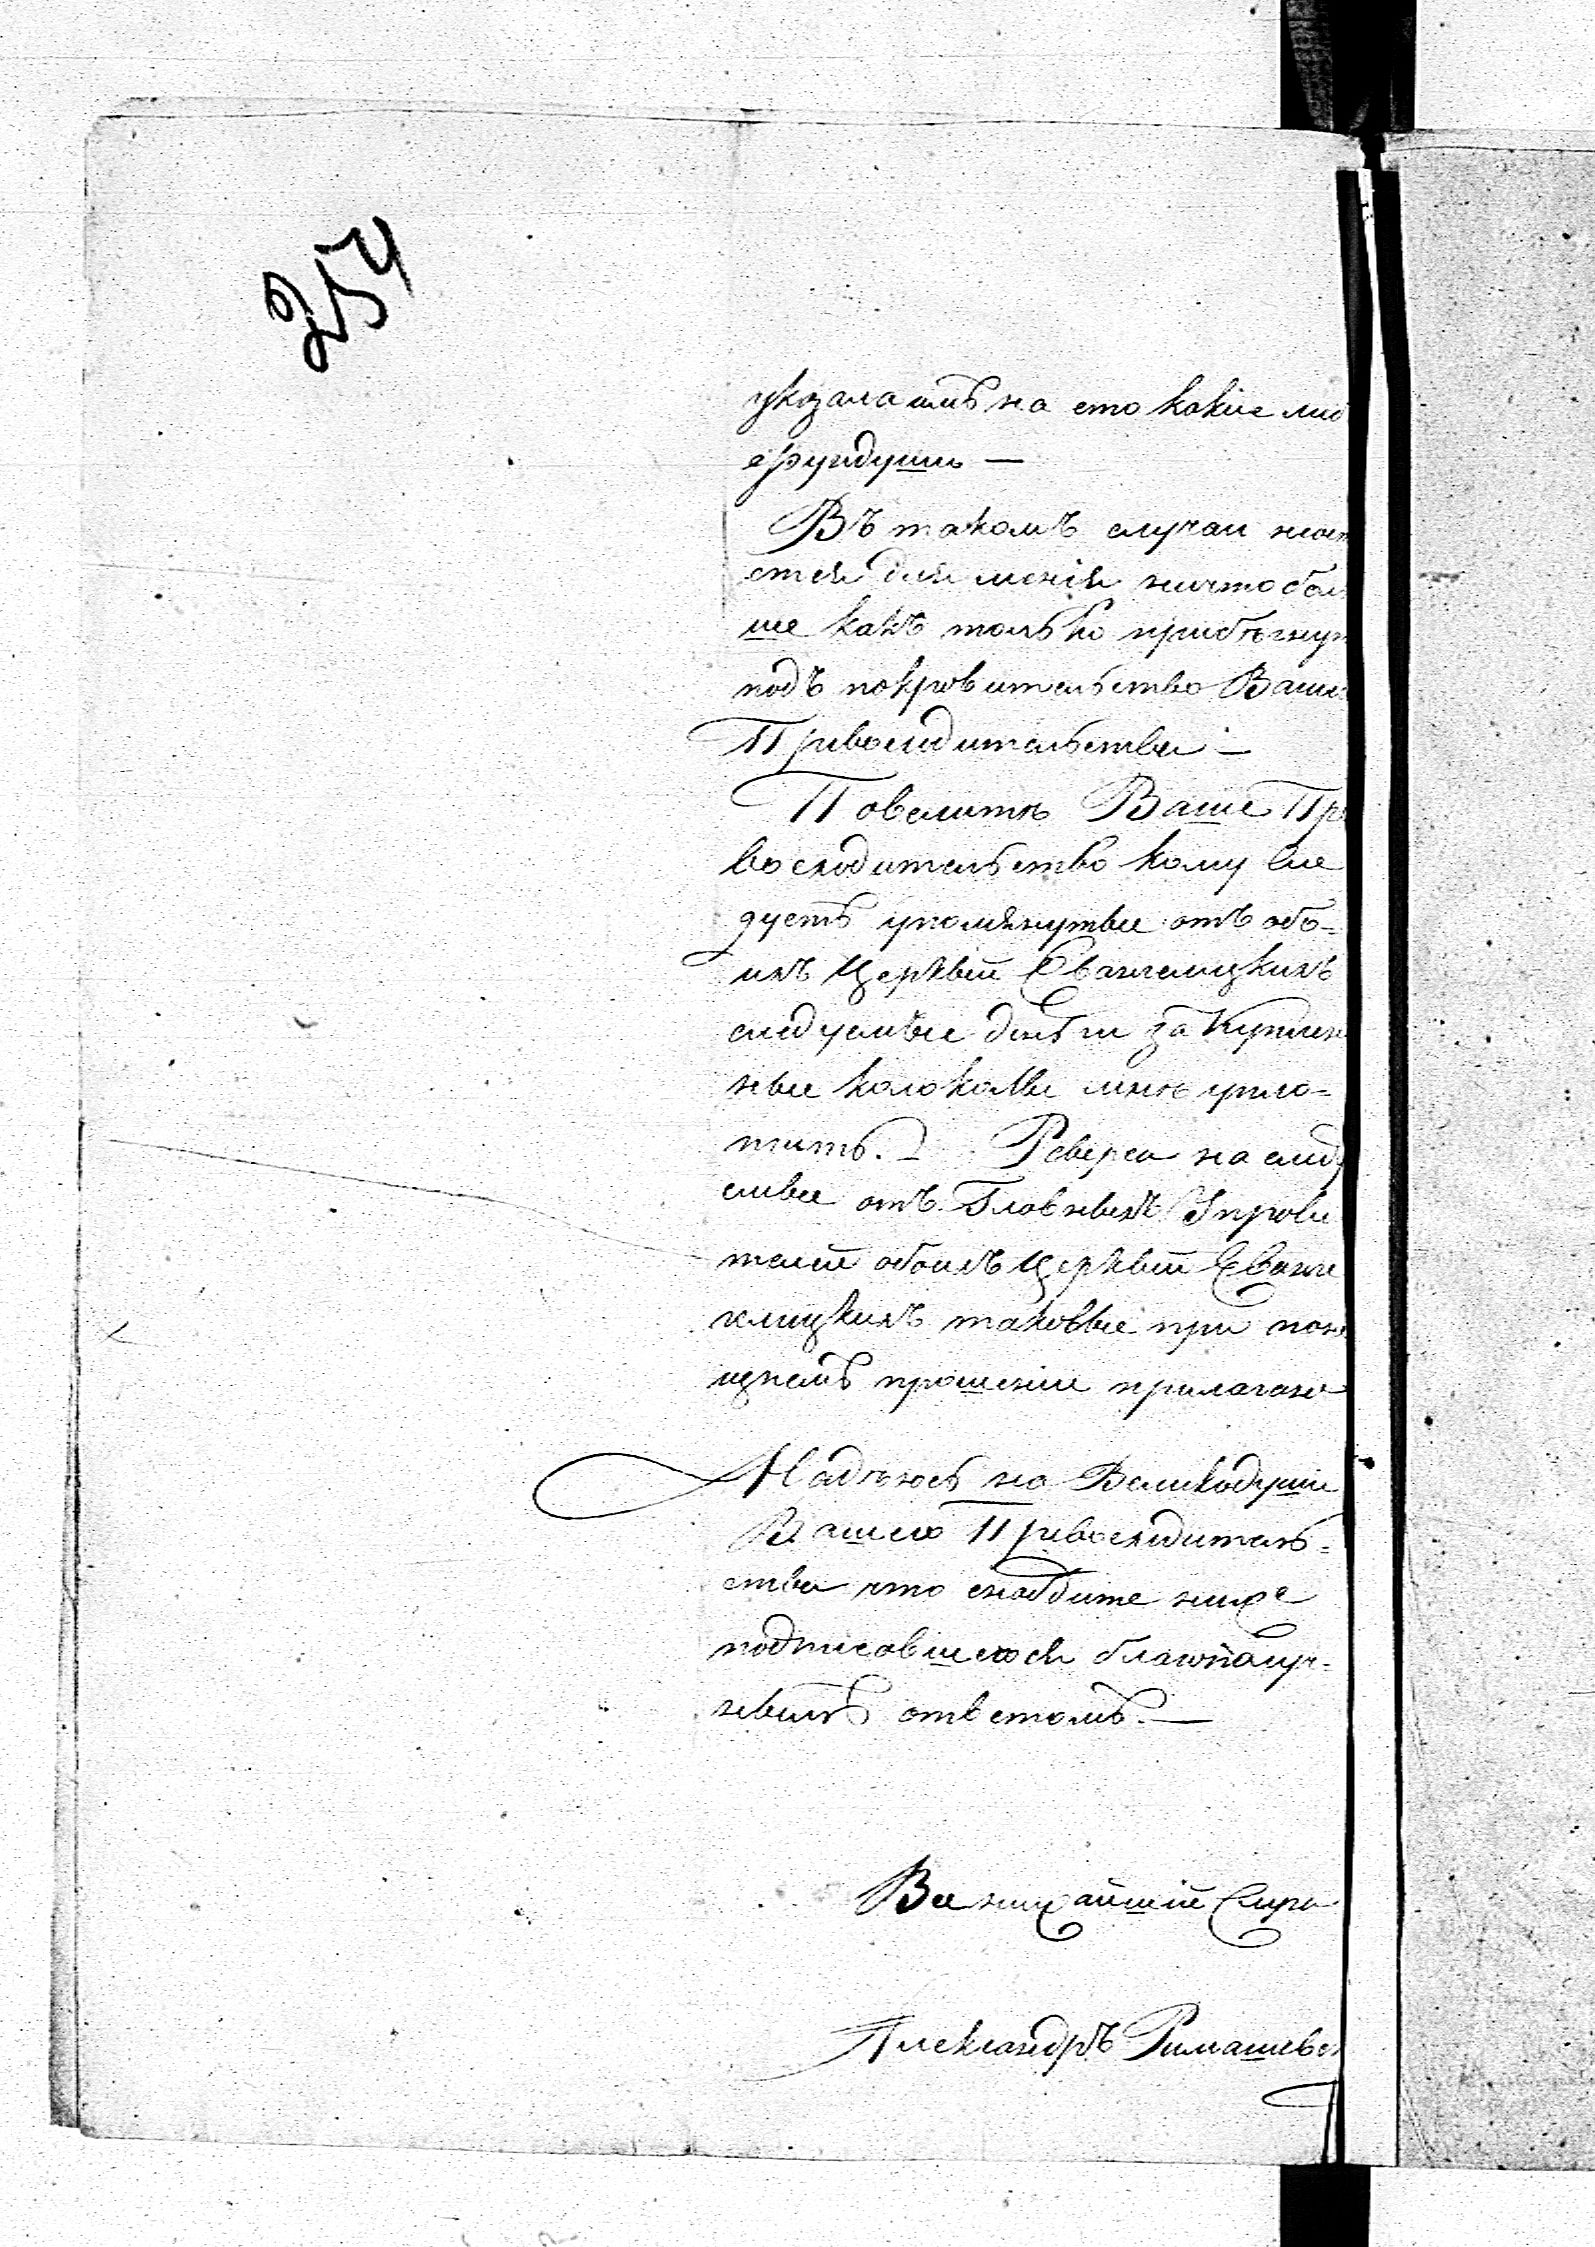 254
указала имъ на ето какіе либ
фундуши —
Въ такомъ случаи неост
ется для меня ничто бол
ше какъ только прибѣгнут
подъ покровительство Ваше
Превосходительства —
Повелитѣ Ваше Пре
восходительство кому сле
дуетъ упомянутые отъ обо-
ихъ Церквей Евангелицкихъ
следуемые деньги за куплен
ные колоколы мнѣ упло-
тить. — Реверса на следу
емые отъ Главныхъ Упрови
телей обоихъ Церквей Еванге
лицкихъ таковые при
прошеніи прилагаю
Надѣюсь на Великодушіе
Вашего Превосходитель-
ства что снабдите ниже
подписавшегося благополуч-
нымъ ответомъ. —
Все нижайшій Слуга
Александръ Римашевск